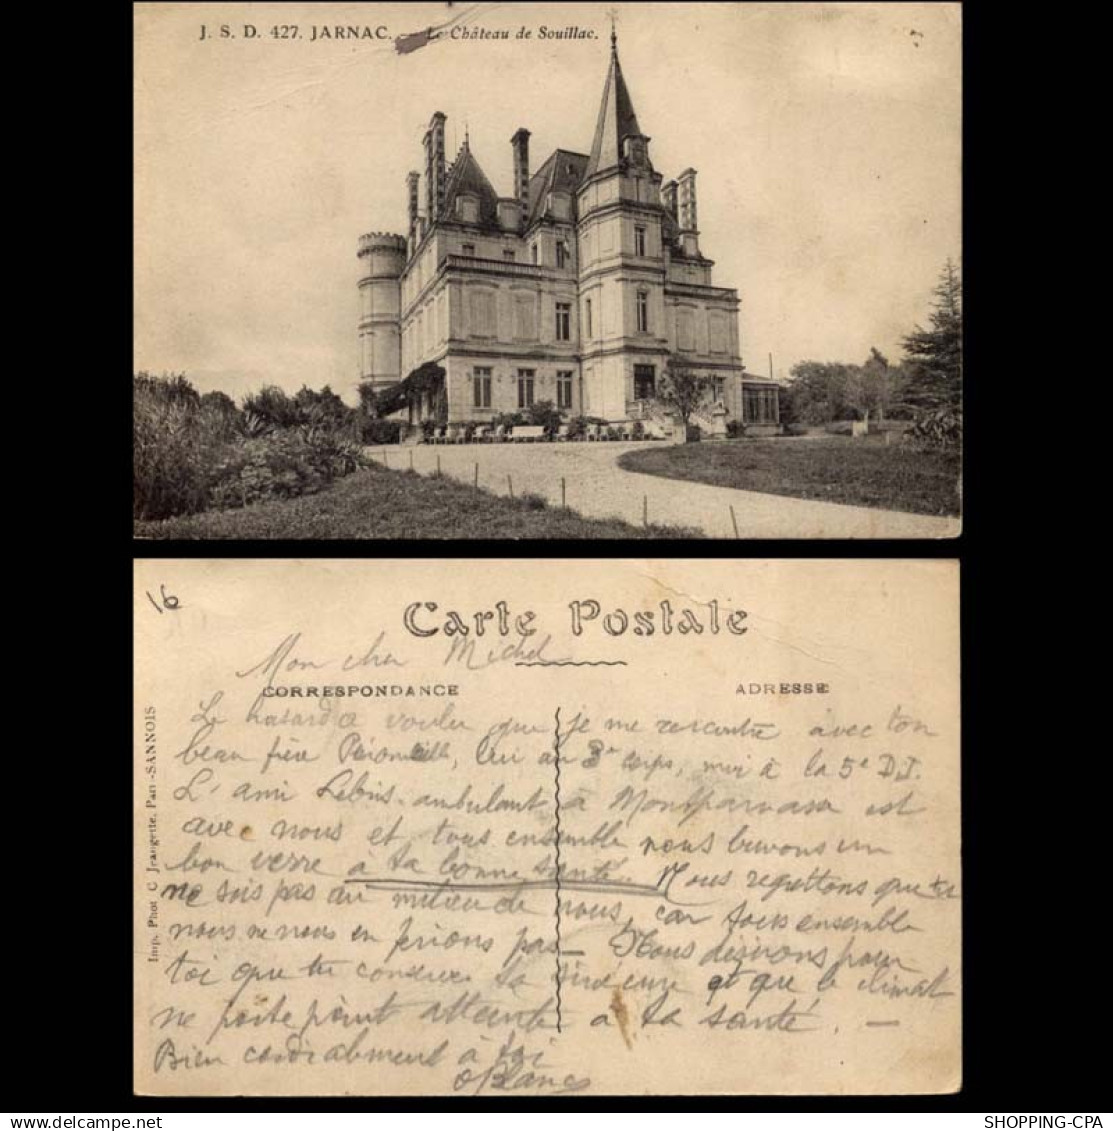 J. S. D. 427. JARNAC. — Le Château de Souillac.
16
Carte Postale
Mon cher Michel
CORRESPONDANCE
ADRESSE
Le hasard a voulu que je me rencontre avec ton
beau frère, lui au 3e corps, moi à la 5e D.I.
L'ami ambulant à Montparnasse est
avec nous et tous ensemble nous buvons un
bon verre à ta bonne santé. Nous regrettons que tu
ne sois pas au milieu de nous, car tous ensemble
nous ne nous en ferions pas — Nous désirons pour
toi que tu conserves ta et que le climat
ne porte point atteinte à ta santé. —
Bien cordialement à toi
Blanc
Imp. Phot C Jeangette, Paris-SANNOIS
SHOPPING-CPA